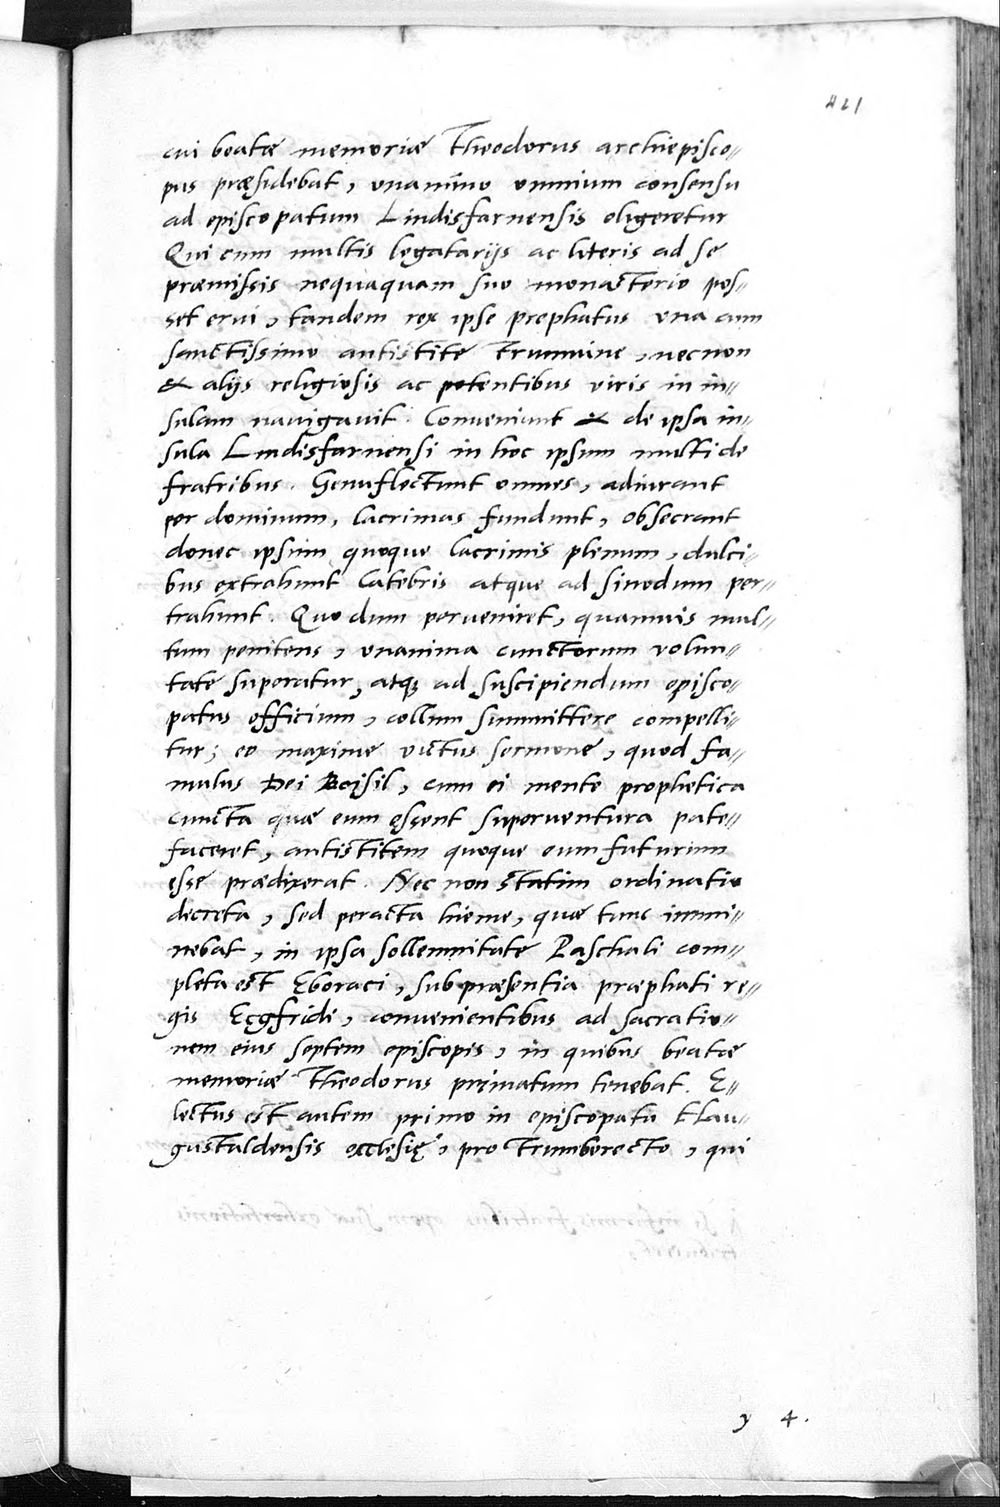 421
cui beatæ memoriæ Theodorus archiepisco„
pus præsidebat, unanimo omnium consensu
ad episcopatum Lindisfarnensis eligeretur
Qui cum multis legatarijs ac literis ad se
præmissis nequaquam suo monasterio pos„
set erui, tandem rex ipse prephatus una cum
sanctissimo antistite Trumuine, necnon
& alijs religiosis ac potentibus viris in in„
sulam navigavit. Conveniunt & de ipsa in„
sula Lindisfarnensi in hoc ipsum multi de
fratribus. Genuflectunt omnes, adiurant
per dominum, lacrimas fundunt, obsecrant
donec ipsum quoque lacrimis plenum, dulci„
bus extrahunt latebris atque ad sinodum per„
trahunt. Quo dum perveniret, quamuis mul„
tum penitens, unanima cunctorum volun„
tate superatur, atq; ad suscipiendum episco„
patus officium, collum summittere compelli„
tur; eo maxime victus sermone, quod fa„
mulus Dei Boisil, cum ei mente prophetica
cuncta quæ eum essent superventura pate„
faceret, antistitem quoque eum futurum
esse prædixerat. Nec non statim ordinatio
decreta, sed peracta hieme, quæ tunc immi„
nebat, in ipsa sollemnitate Paschali com„
pleta est Eboraci, sub præsentia præphati re„
gis Ecgfridi, convenientibus ad sacratio„
nem eius septem episcopis, in quibus beatæ
memoriæ Theodorus primatum tenebat. E„
lectus est autem primo in episcopatu Hau„
gustaldensis ecclesię, pro Trumberecto, qui
y 4.